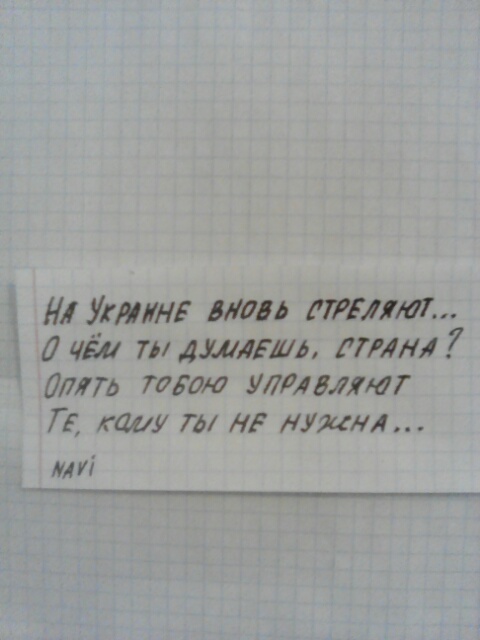 На Украине вновь стреляют...
О чём ты думаешь, страна?
Опять тобою управляют
Те, кому ты не нужна...
NAVi